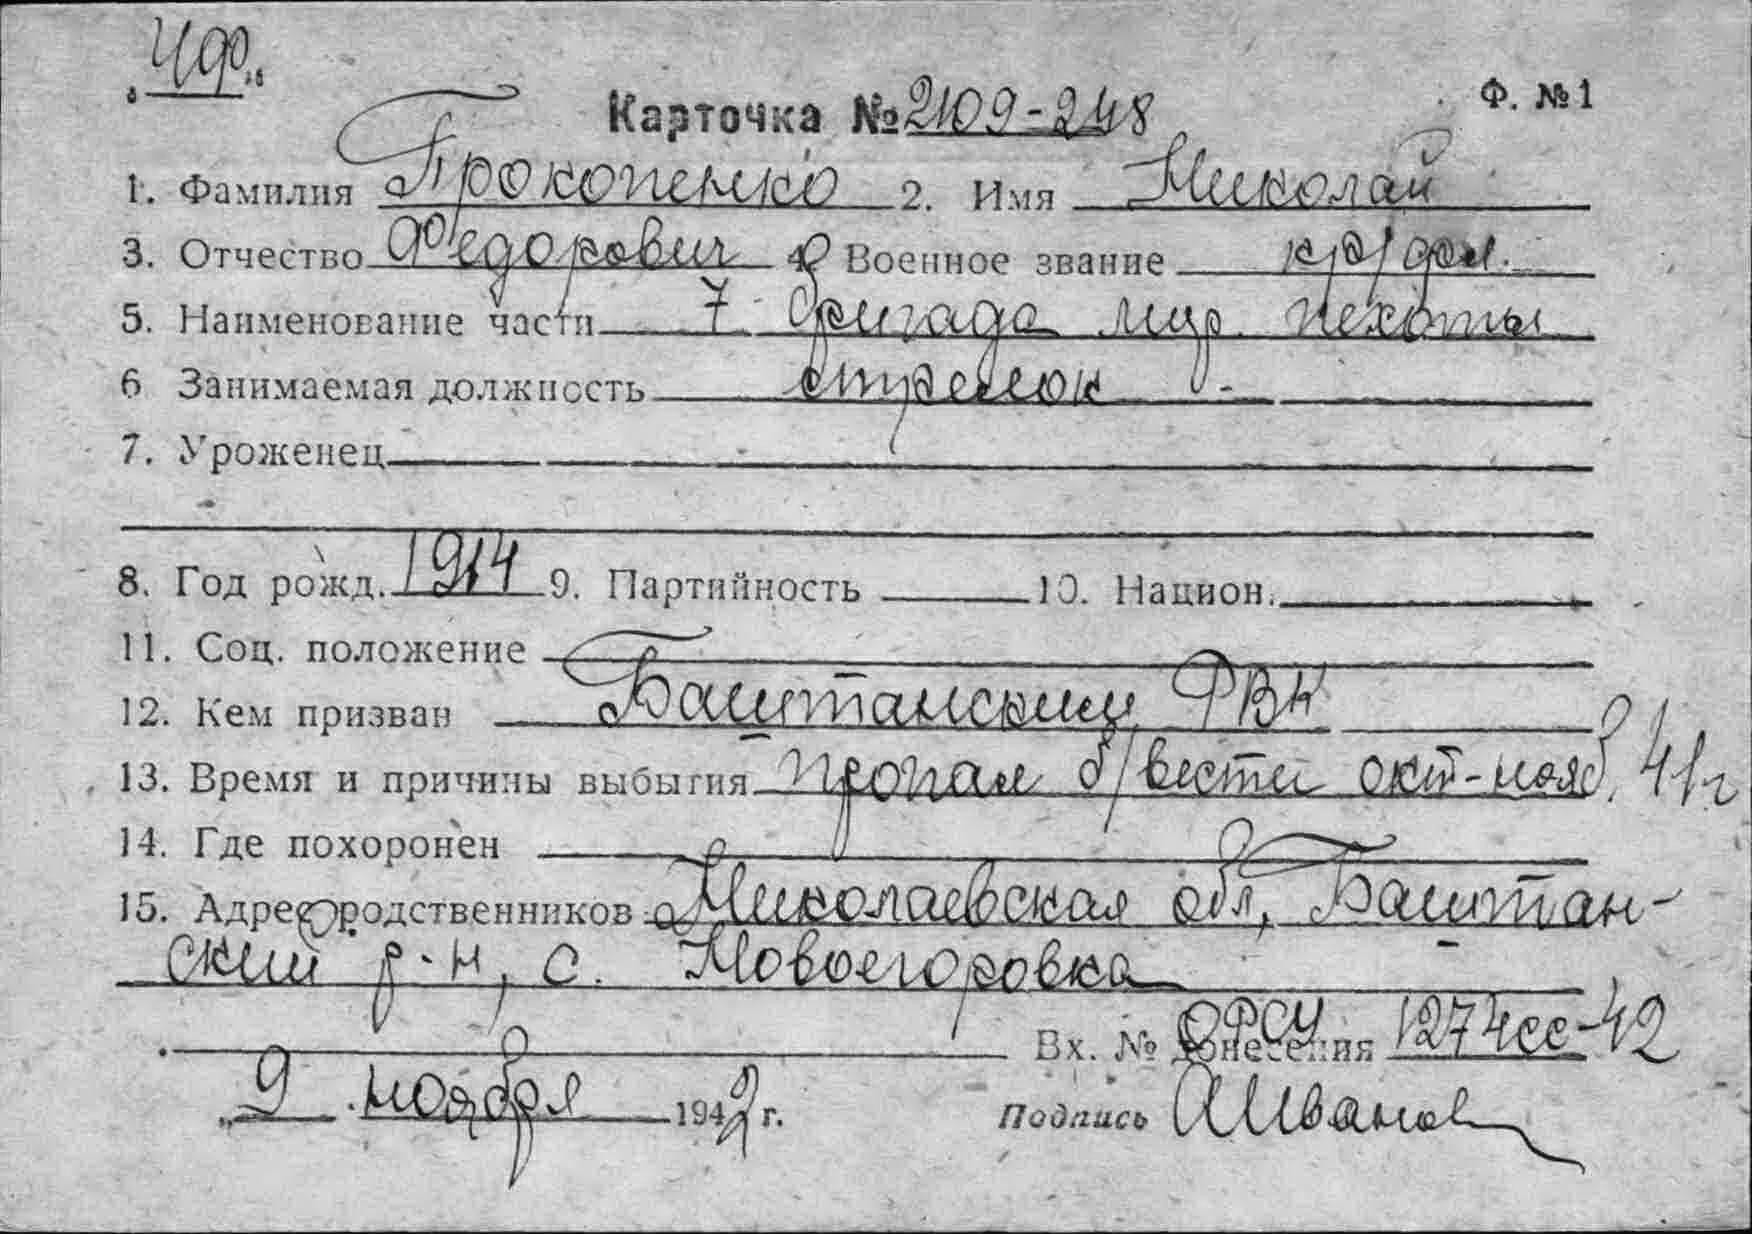 "ЧФ"
Ф. №1
Карточка № 2109-248
1. Фамилия Прокопенко 2. Имя Николай
3. Отчество Федорович 4. Военное звание кр/фл.
5. Наименование части 7 бригада мор. пехоты
6 Занимаемая должность стрелок -
7. Уроженец
8. Год рожд. 1914 9. Партийность 10. Национ.
11. Соц. положение
12. Кем призван Баштанским РВК
13. Время и причины выбытия пропал б/вести окт-нояб. 41 г
14. Где похоронен
15. Адрес родственников Николаевская обл, Баштан-
ский р-н, с. Новоегоровка
Вх. № донесения ОРСУ 1274сс-42
"9 ноября 1942 г. Подпись АИванов